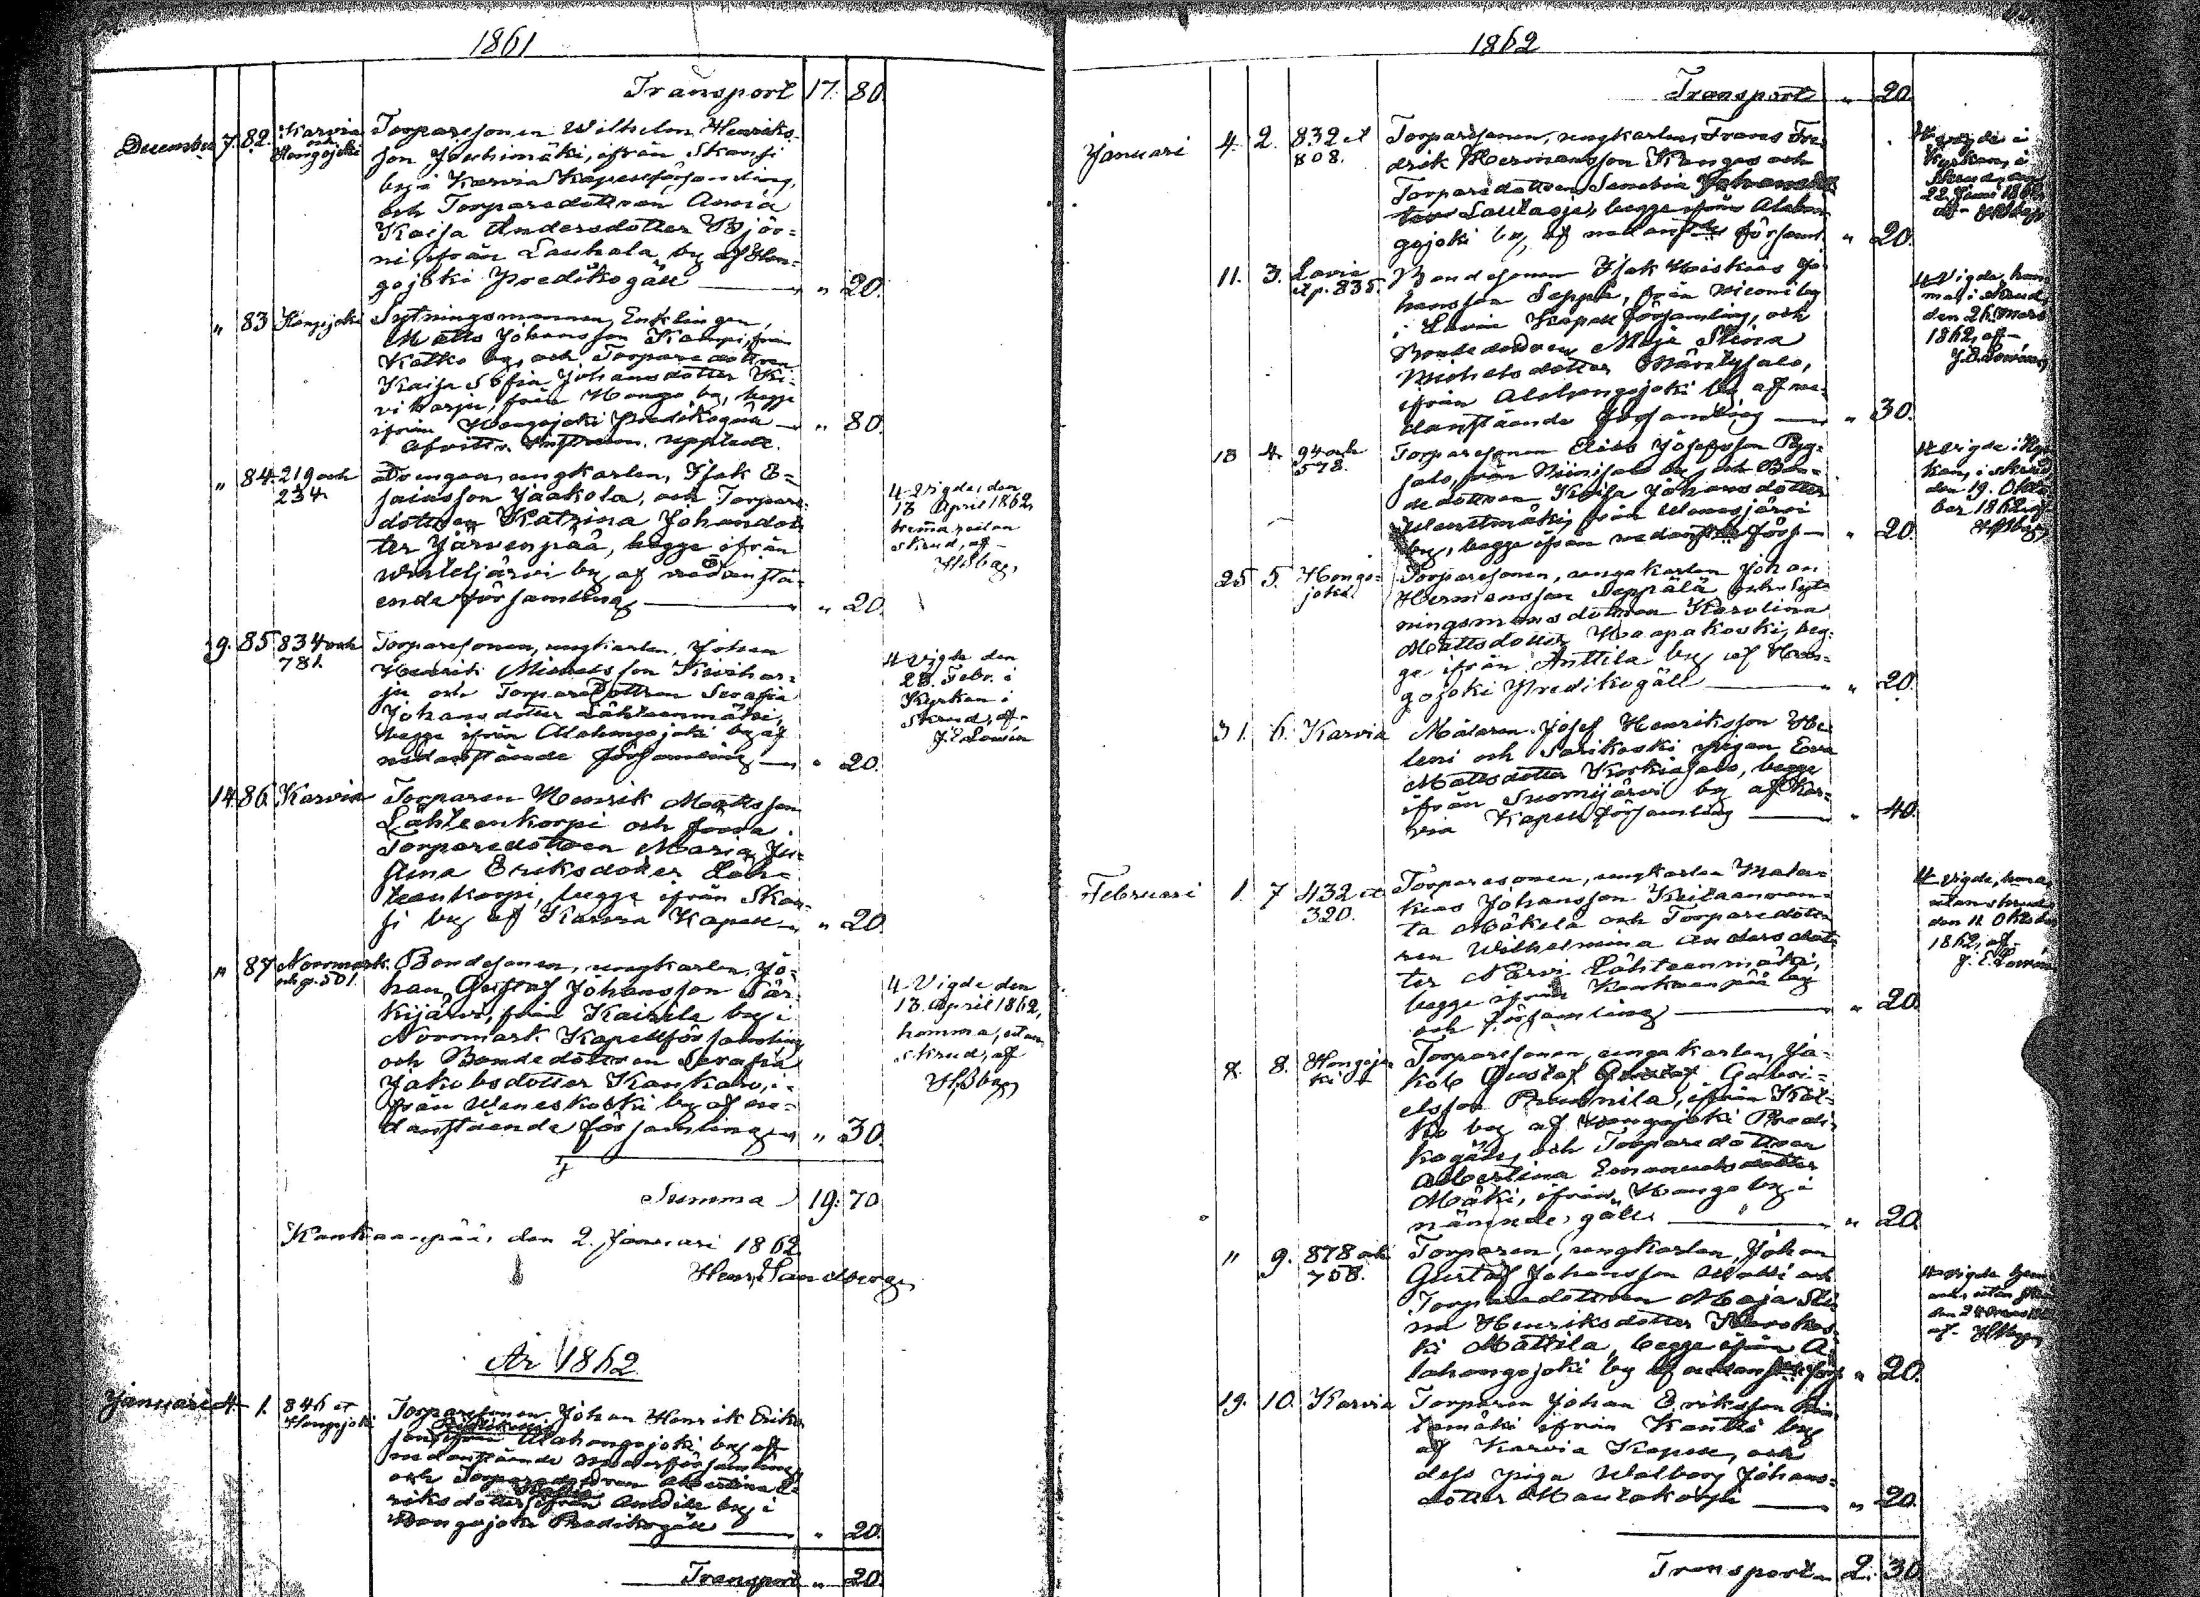 1861
Transport 17. 80.
December 7. 82. Karvia och Hongojoki
Torparesonen Wilhelm Henriks-
son Jouhimäki, ifrån Skansi
by i Karvia Kapellförsamling,
och Torparedottren Anna
Kaisa Andersdotter Björ-
ni, ifrån Lauhala by af Hon-
gojoki Predikogäll " 20.
" 83 Hongojoki
Sytningsmannen, Enklingen,
Matts Johansson Kampi, från
Katko by, och Torparedottren
Kaisa Sofia Johansdotter Ki-
viharju, från Hongo by, begge
ifrån Hongojoki Predikogäll " 80.
84. 219 och 234
Drengen, ungkarlen, Isak E-
saiasson Jaakola, och Torpare-
dottren Katrina Johansdot-
ter Järvenpää, begge ifrån
by af nedanstå-
ende församling " 20.
4 Vigde, den
13 April 1862,
hemma utan
skrud, af
9. 85 834 och 781.
Torparesonen, ungkarlen, Johan
Henrik Michelsson Kivihar-
ju och Torparedottren Serafia
Johansdotter Lähteenmäki,
begge ifrån Alahongojoki by af
nedanstående församling " 20.
4 Vigde den
23. Febr. i
Kyrkan i
skrud, af
J. E. Lovén
14. 86. Karvia
Torparen Henrik Mattsson
Lähteenkorpi och förra
Torparedottren Maria Ju-
stina Eriksdotter Läh-
teenkorpi, begge ifrån Skan-
si by af Karvia Kapell " 20.
" 87 Norrmark och p. 501.
Bondesonen, ungkarlen, Jo-
han Gustaf Johansson Sär-
kijärvi, från Kairila by i
Norrmark Kapellförsamling
och Bondedottren Serafia
Jakobsdotter Kankaro, i-
från Weneskoski by af ne-
danstående församling " 30.
4 Vigde den
13. April 1862,
hemma, utan
skrud, af
Summa 19. 70
Kankaanpää, den 2. Januari 1862
Henr. Sandberg
År 1862.
Januari 4. 1. 846 et Hongojoki
Torparesonen Johan Henrik Eriks-
son Alahongojoki by af
nedanstående moderförsamling
och Torparedottren Albertina E-
riksdotter ifrån Anttila by i
Hongojoki Predikogäll " 20.
Transport " 20.
1862
Transport " 20.
Januari 4. 2. 832 et 808.
Torparesonen, ungkarlen, Frans Fre-
drik Hermansson Kangas och
Torparedottren Senobia
Lautaoja, begge ifrån Alahon-
gojoki by, af nedanst. församl. " 20.
4 Vigde i
Kyrkan, i
skrud, den
22 Juni 1862,
af
11. 3. Lavia et p. 835.
Bondesonen Isak Heiskias Jo-
hansson Seppä, från Niemi by
i Lavia Kapellförsamling, och
Bondedottren Maja Stina
Michelsdotter Mäntysalo,
ifrån Alahongojoki by af ne-
danstående församling " 30.
4 Vigde, hem-
ma, i skrud,
den 26. Mars
1862, af
J. E. Lovén
13 4. 94 och 578.
Torparesonen Elias Josefsson Pyy-
salo, från Niinisalo by, och Bon-
dedottren Kaisa Johansdotter
Wenesjärvi
by, begge ifrån nedanst. förs. " 20.
4 Vigde i Kyr-
kan, i skrud
den 19. Okto-
ber 1862, af
25 5. Hongo-joki
Torparesonen, ungakarlen Johan
Hermansson Seppälä och Syt-
ningsmansdottren Karolina
Mattsdotter Haapakoski, beg-
ge ifrån Anttila by af Hon-
gojoki Predikogäll " 20.
31. 6. Karvia
Målaren Josef Henriksson
och Sarikoski pigan Eva
Mattsdotter Korkiasalo, begge
ifrån Suomijärvi by af Kar-
via Kapellförsamling " 40.
Februari 1. 7 432 et 320.
Torparesonen, ungkarlen Mala-
kias Johansson Keitaanran-
ta Mäkelä och Torparedott-
ren Wilhelmina Andersdot-
ter Närvi Lähteenmäki,
begge ifrån Kankaanpää by
och församling " 20.
4 Vigde, hema,
utan skrud
den 11. Oktober
1862, af
J. E. Lovén
8. 8. Hongojo-ki
Torparesonen, unga karlen, Ja-
kob Gustaf Gabri-
elsson Ruusnila, ifrån Kat-
ko by af Hongojoki Predi-
kogäll, och Torparedottren
Albertina Emanuelsdotter
Mäki, ifrån Hongo by i
nämnde gäll " 20.
" 9. 878 och 758.
Torparen, ungkarlen, Johan
Gustaf Johansson och
Torparedottren Maja Sti-
na Henriksdotter
Mattila, begge ifrån A-
lahongojoki by af nedanst. förs. " 20.
19. 10. Karvia
Torparen Johan Eriksson
ifrån Kantti by
af Karvia Kapell, och
dess piga Walborg Johans-
dotter Mautakorpi " 20.
Transport 2. 30.